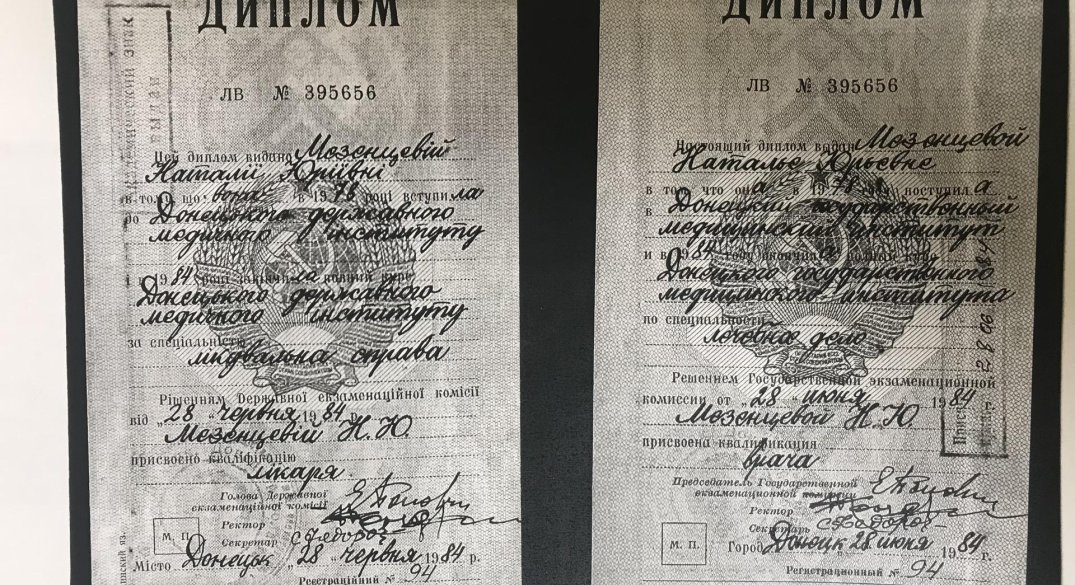 ДИПЛОМ
ЛВ № 395656
Цей диплом видано Мозенцевій
Наталії Юріївні
в тому, що вона в 1978 році вступила
до Донецького державного
медичного інституту
і в 1984 році закінчила повний курс
Донецького державного
медичного інституту
за спеціальністю
лікувальна справа
Рішенням Державної екзаменаційної комісії
від „28" червня 1984 р.
Мозенцевій Н. Ю.
присвоєно кваліфікацію
лікаря
Голова Державної
екзаменаційної комісії
Ректор
Секретар
М. П.
Місто Донецьк „28" червня 1984 р.
Реєстраційний № 94
ДИПЛОМ
ЛВ № 395656
Настоящий диплом выдан Мозенцевой
Наталье Юрьевне
в том, что она в 1978 году поступила
в Донецкий государственный
медицинский институт
и в 1984 году окончила полный курс
Донецкого государственного
медицинского института
по специальности
лечебное дело
Решением Государственной экзаменационной
комиссии от „28" июня 1984
Мозенцевой Н. Ю.
присвоена квалификация
врача
Председатель Государственной
экзаменационной комиссии
Ректор
Секретарь
М. П.
Город Донецк 28 июня 1984 г.
Регистрационный № 94